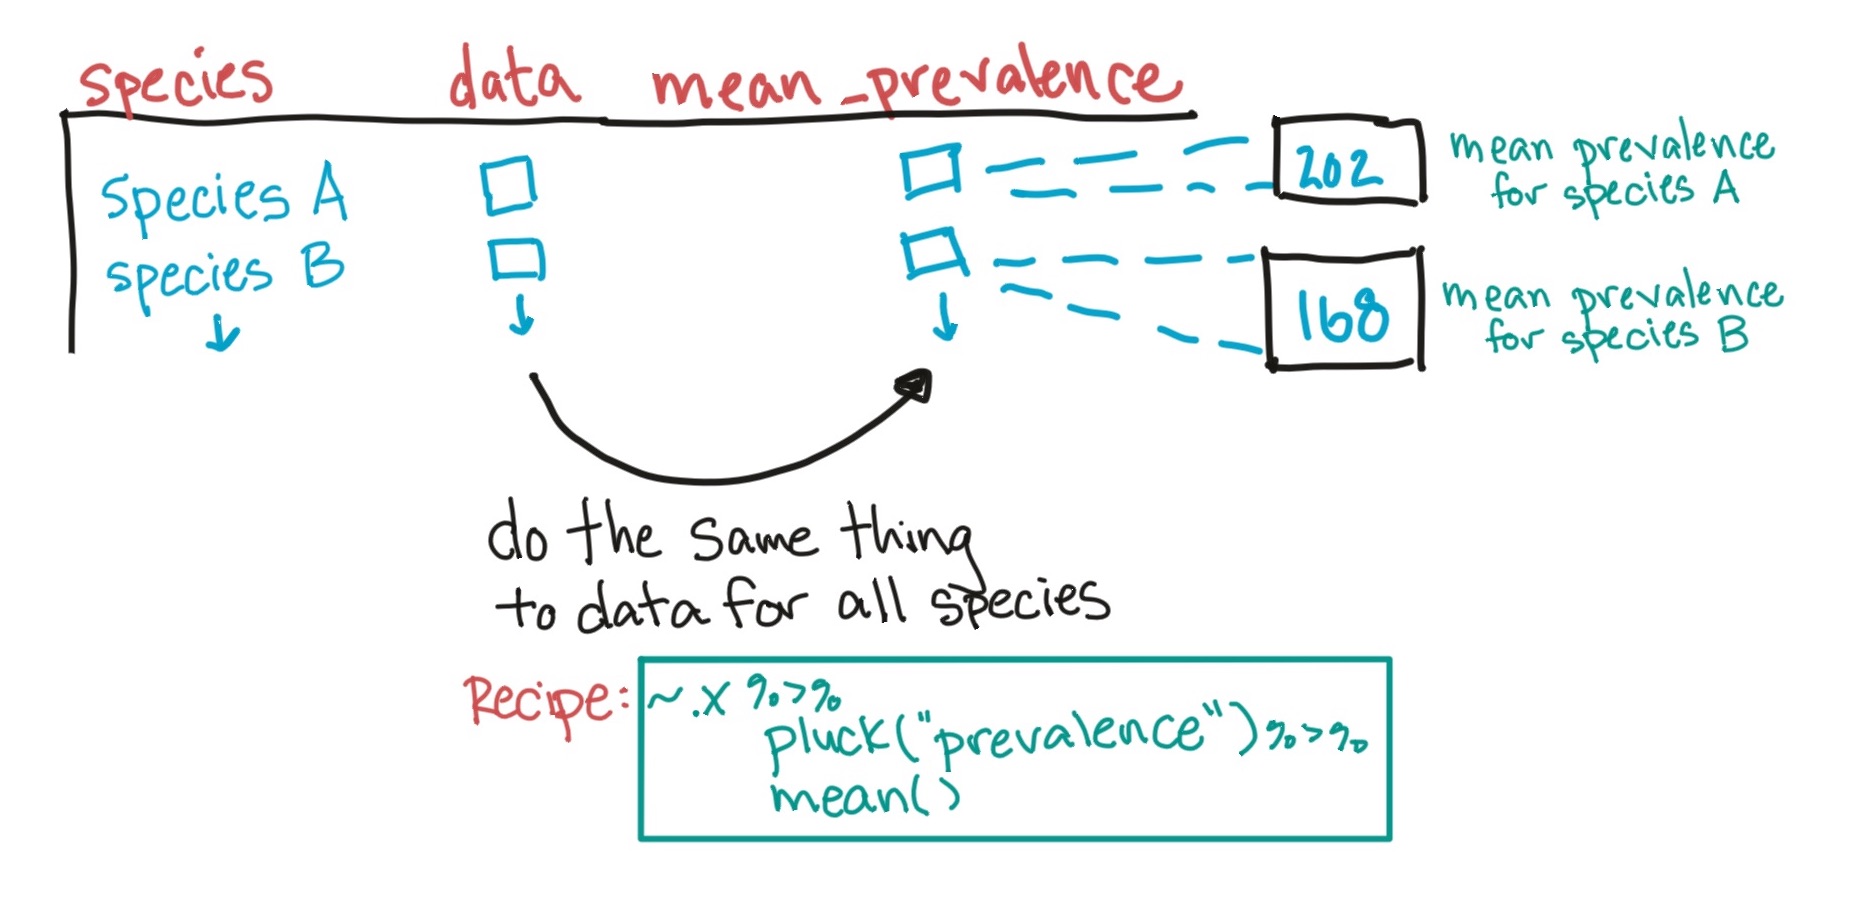 species data mean_prevalence
species A
species B
202
mean prevalence
for species A
168
mean prevalence
for species B
do the same thing
to data for all species
Recipe:
~ .x %>%
pluck("prevalence") %>%
mean()